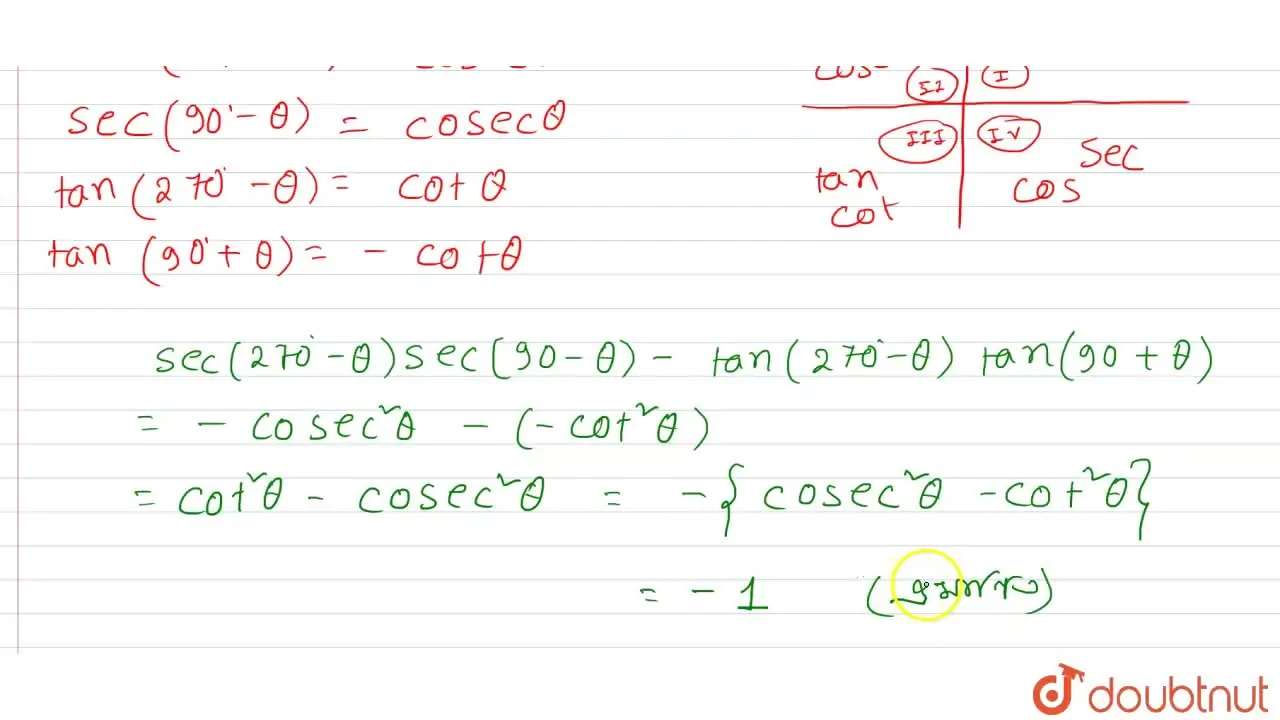 sec(90°-θ) = cosecθ
tan(270°-θ) = cotθ
tan(90°+θ) = -cotθ
II I
III IV
tan
cot
sec
cos
sec(270°-θ)sec(90-θ) - tan(270°-θ) tan(90+θ)
= -cosec²θ - (-cot²θ)
= cot²θ - cosec²θ = -{cosec²θ - cot²θ}
= -1
doubtnut